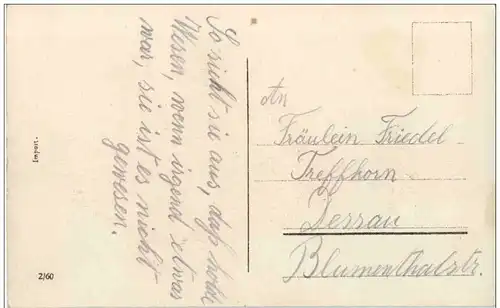 So sieht sie aus, daß holde
Wesen, wenn irgend etwas
war, sie ist es nicht
gewesen.
An
Fräulein Friedel
Treffkorn
Dessau
Blumenthalstr.
Import.
2/60